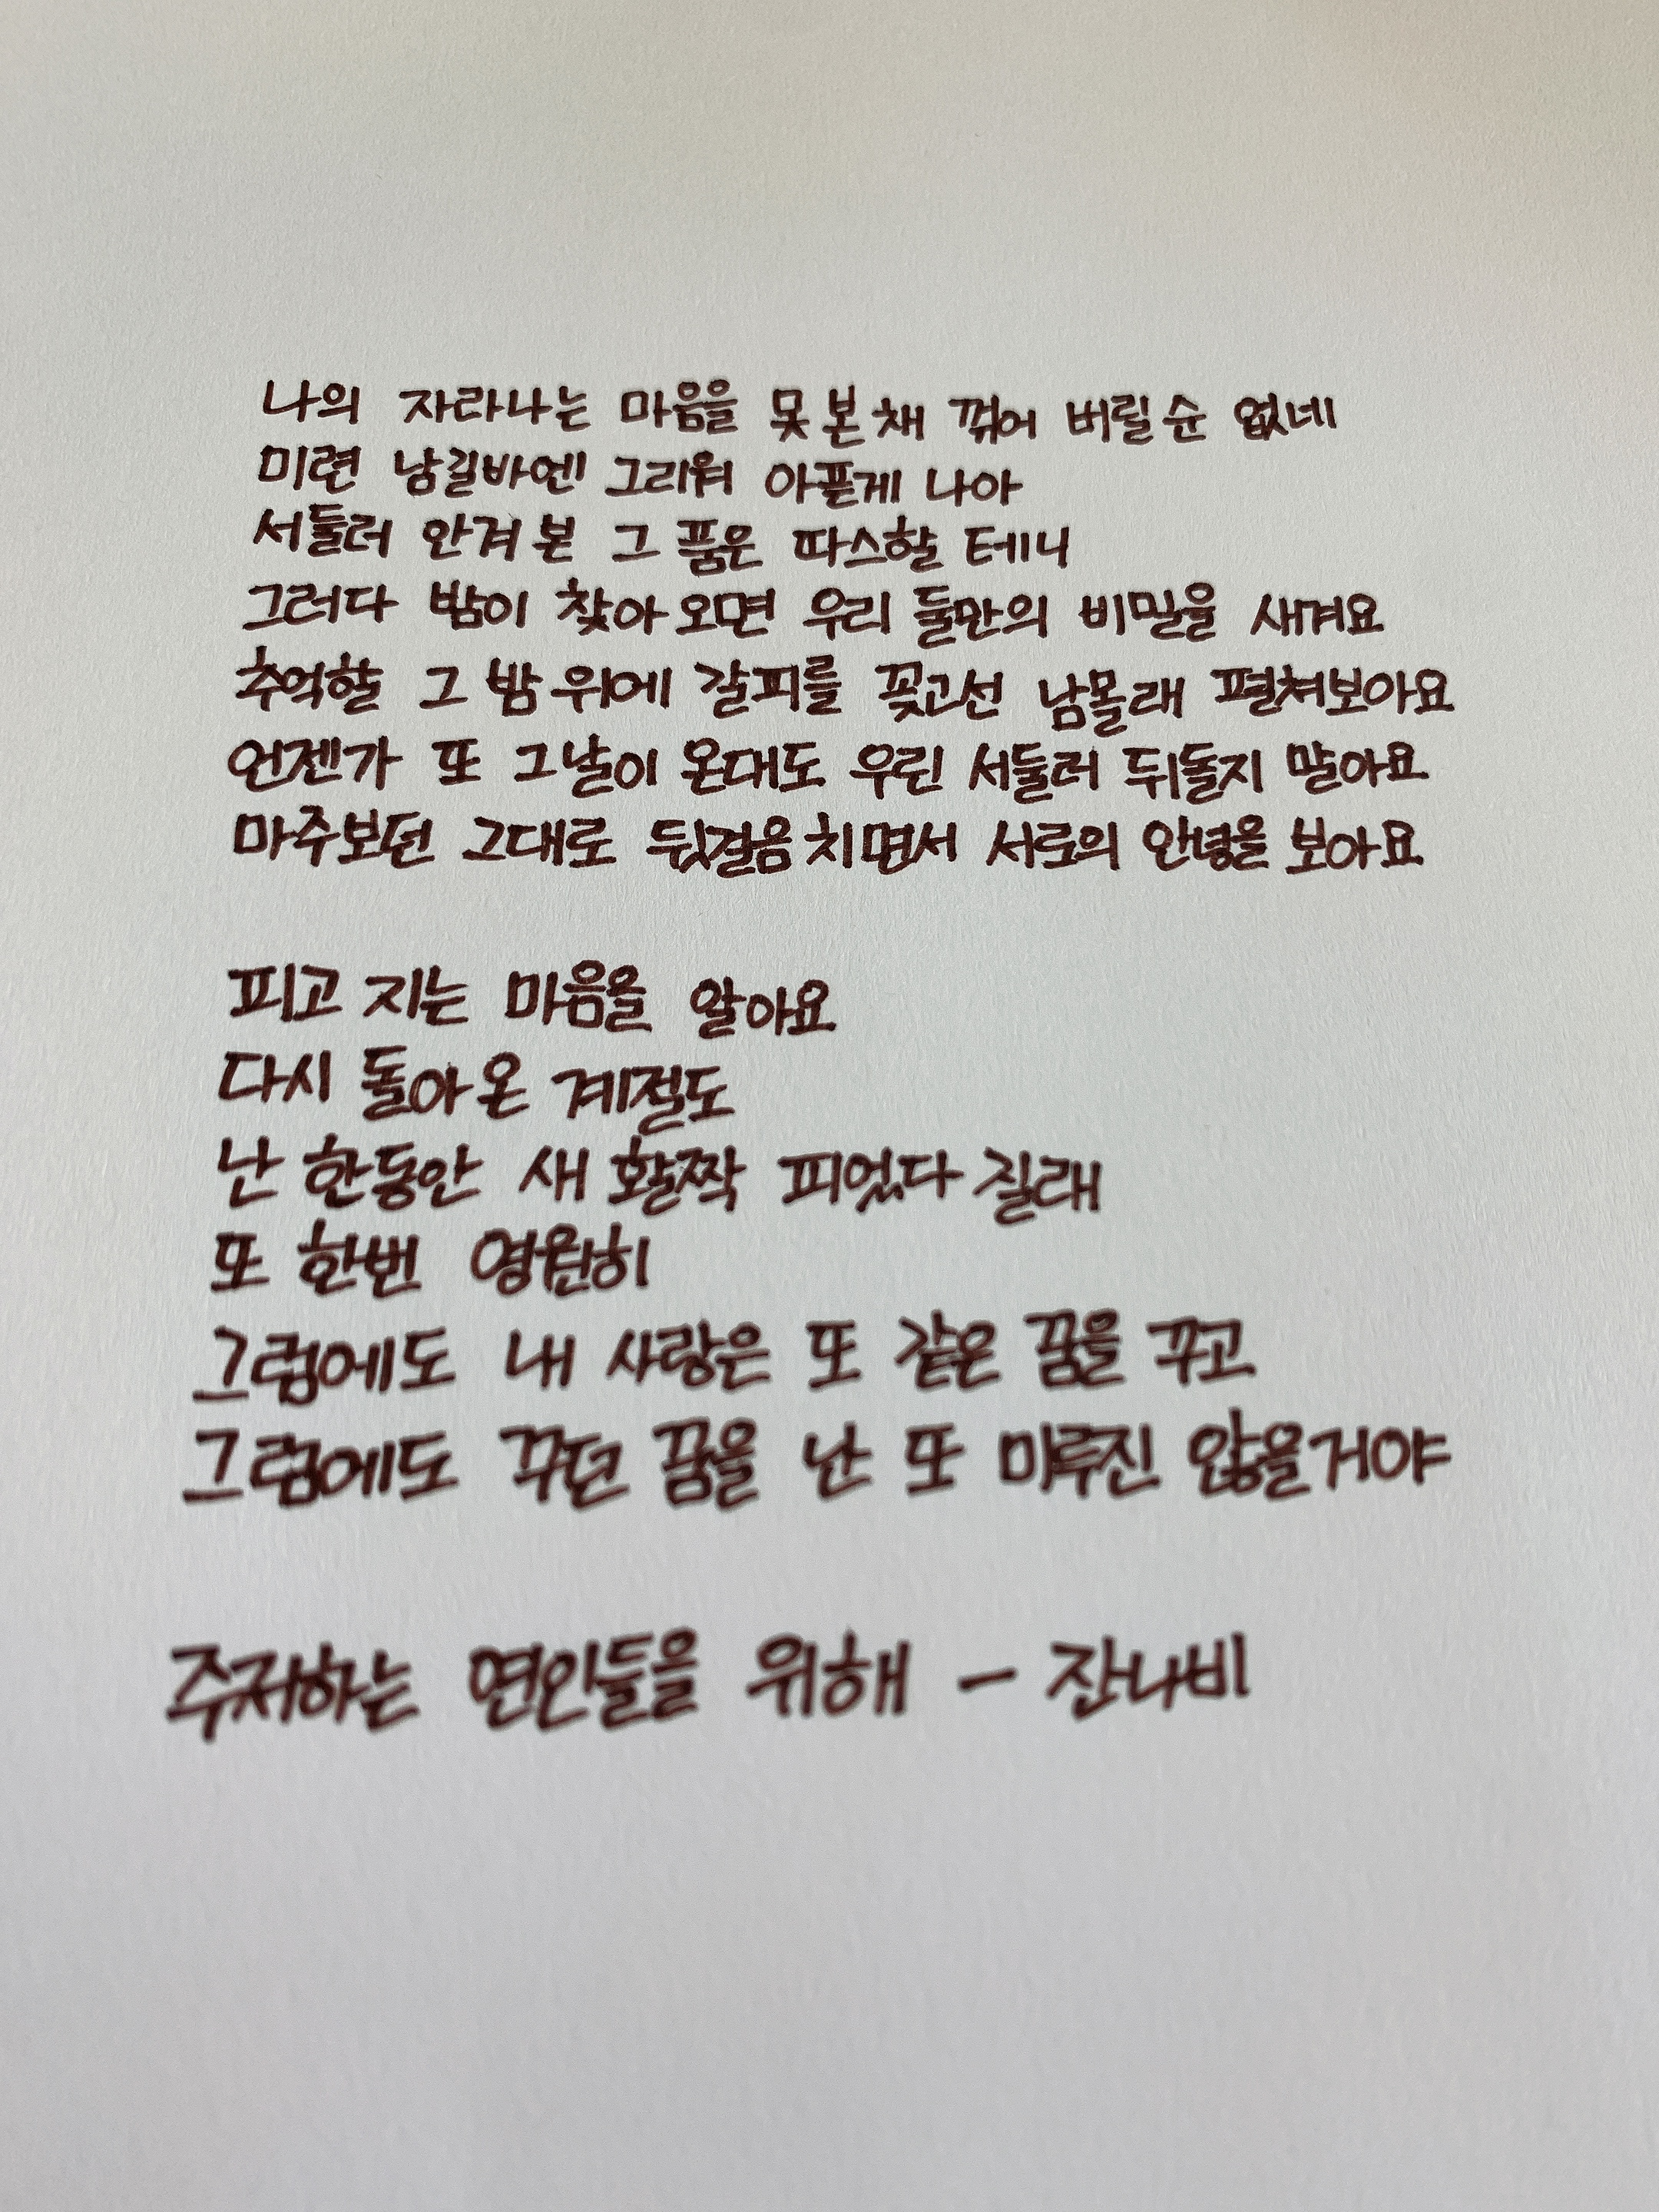 나의 자라나는 마음을 못 본 채 꺾어 버릴 순 없네
미련 남길바엔 그리워 아픈게 나아
서둘러 안겨 본 그 품은 따스할 테니
그러다 밤이 찾아 오면 우리 둘만의 비밀을 새겨요
추억할 그 밤 위에 갈피를 꽂고선 남몰래 펼쳐보아요
언젠가 또 그날이 온대도 우린 서둘러 뒤돌지 말아요
마주보던 그대로 뒷걸음 치면서 서로의 안녕을 보아요
피고 지는 마음을 알아요
다시 돌아 온 계절도
난 한동안 새 활짝 피었다 질래
또 한번 영원히
그럼에도 내 사랑은 또 같은 꿈을 꾸고
그럼에도 꾸던 꿈을 난 또 미루진 않을거야
주저하는 연인들을 위해 - 잔나비